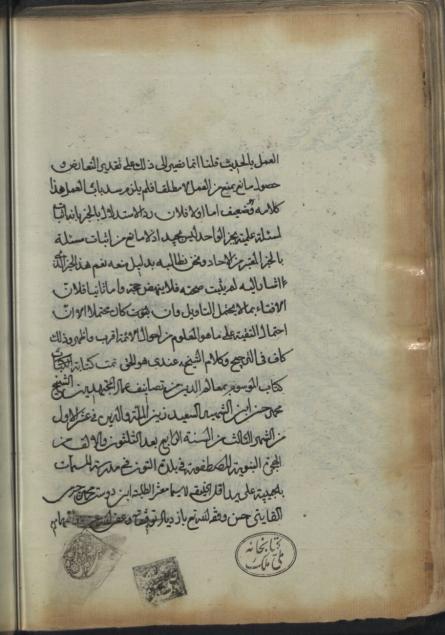 العمل بالحديث قلنا انما نصير الى ذلك على تقدير التعارض و
حصول مانع يمنع من العمل لا مطلقا فلم يلزم سد باب العمل هذا
كلامه وضعيف اما اولا فلان رد الاستدلال بالخبر بانه اثبات
لمسئلة علمية بخبر الواحد ليس بجيد اذ لا مانع من اثبات مسئلة
بالخبر المعتبر من الاحاد ونحن نطالبه بدليل منعه نعم هذا الخبر الذى
اشار اليه لم يثبت صحته فلا ينهض حجة واما ثانيا فلان
الافتاء بما لا يحتمل التاويل وان كان محتملا الا ان
احتمال التقية على ما هو المعلوم من احوال الائمة اقرب واظهر وذلك
كاف فى الترجيح وكلام الشيخ عندى هو الحق تمت كتابة
كتاب الموسوم بمعالم الدين من تصانيف جمال المجتهدين الشيخ
حسن ابن الشهيد السعيد زين الملة والدين فى عشر الاول
من الشهر الثالث من السنة الرابع بعد الثلثون والالف من
الهجرة النبوية المصطفوية فى بلدة التون فى مدرسة المسمات
بلحبيبية على يد اقل الخليقة لا سيما معشر الطلبة ابن دوست محمد
القاينى حسن وفقه
كتابخانه
ملى ملك